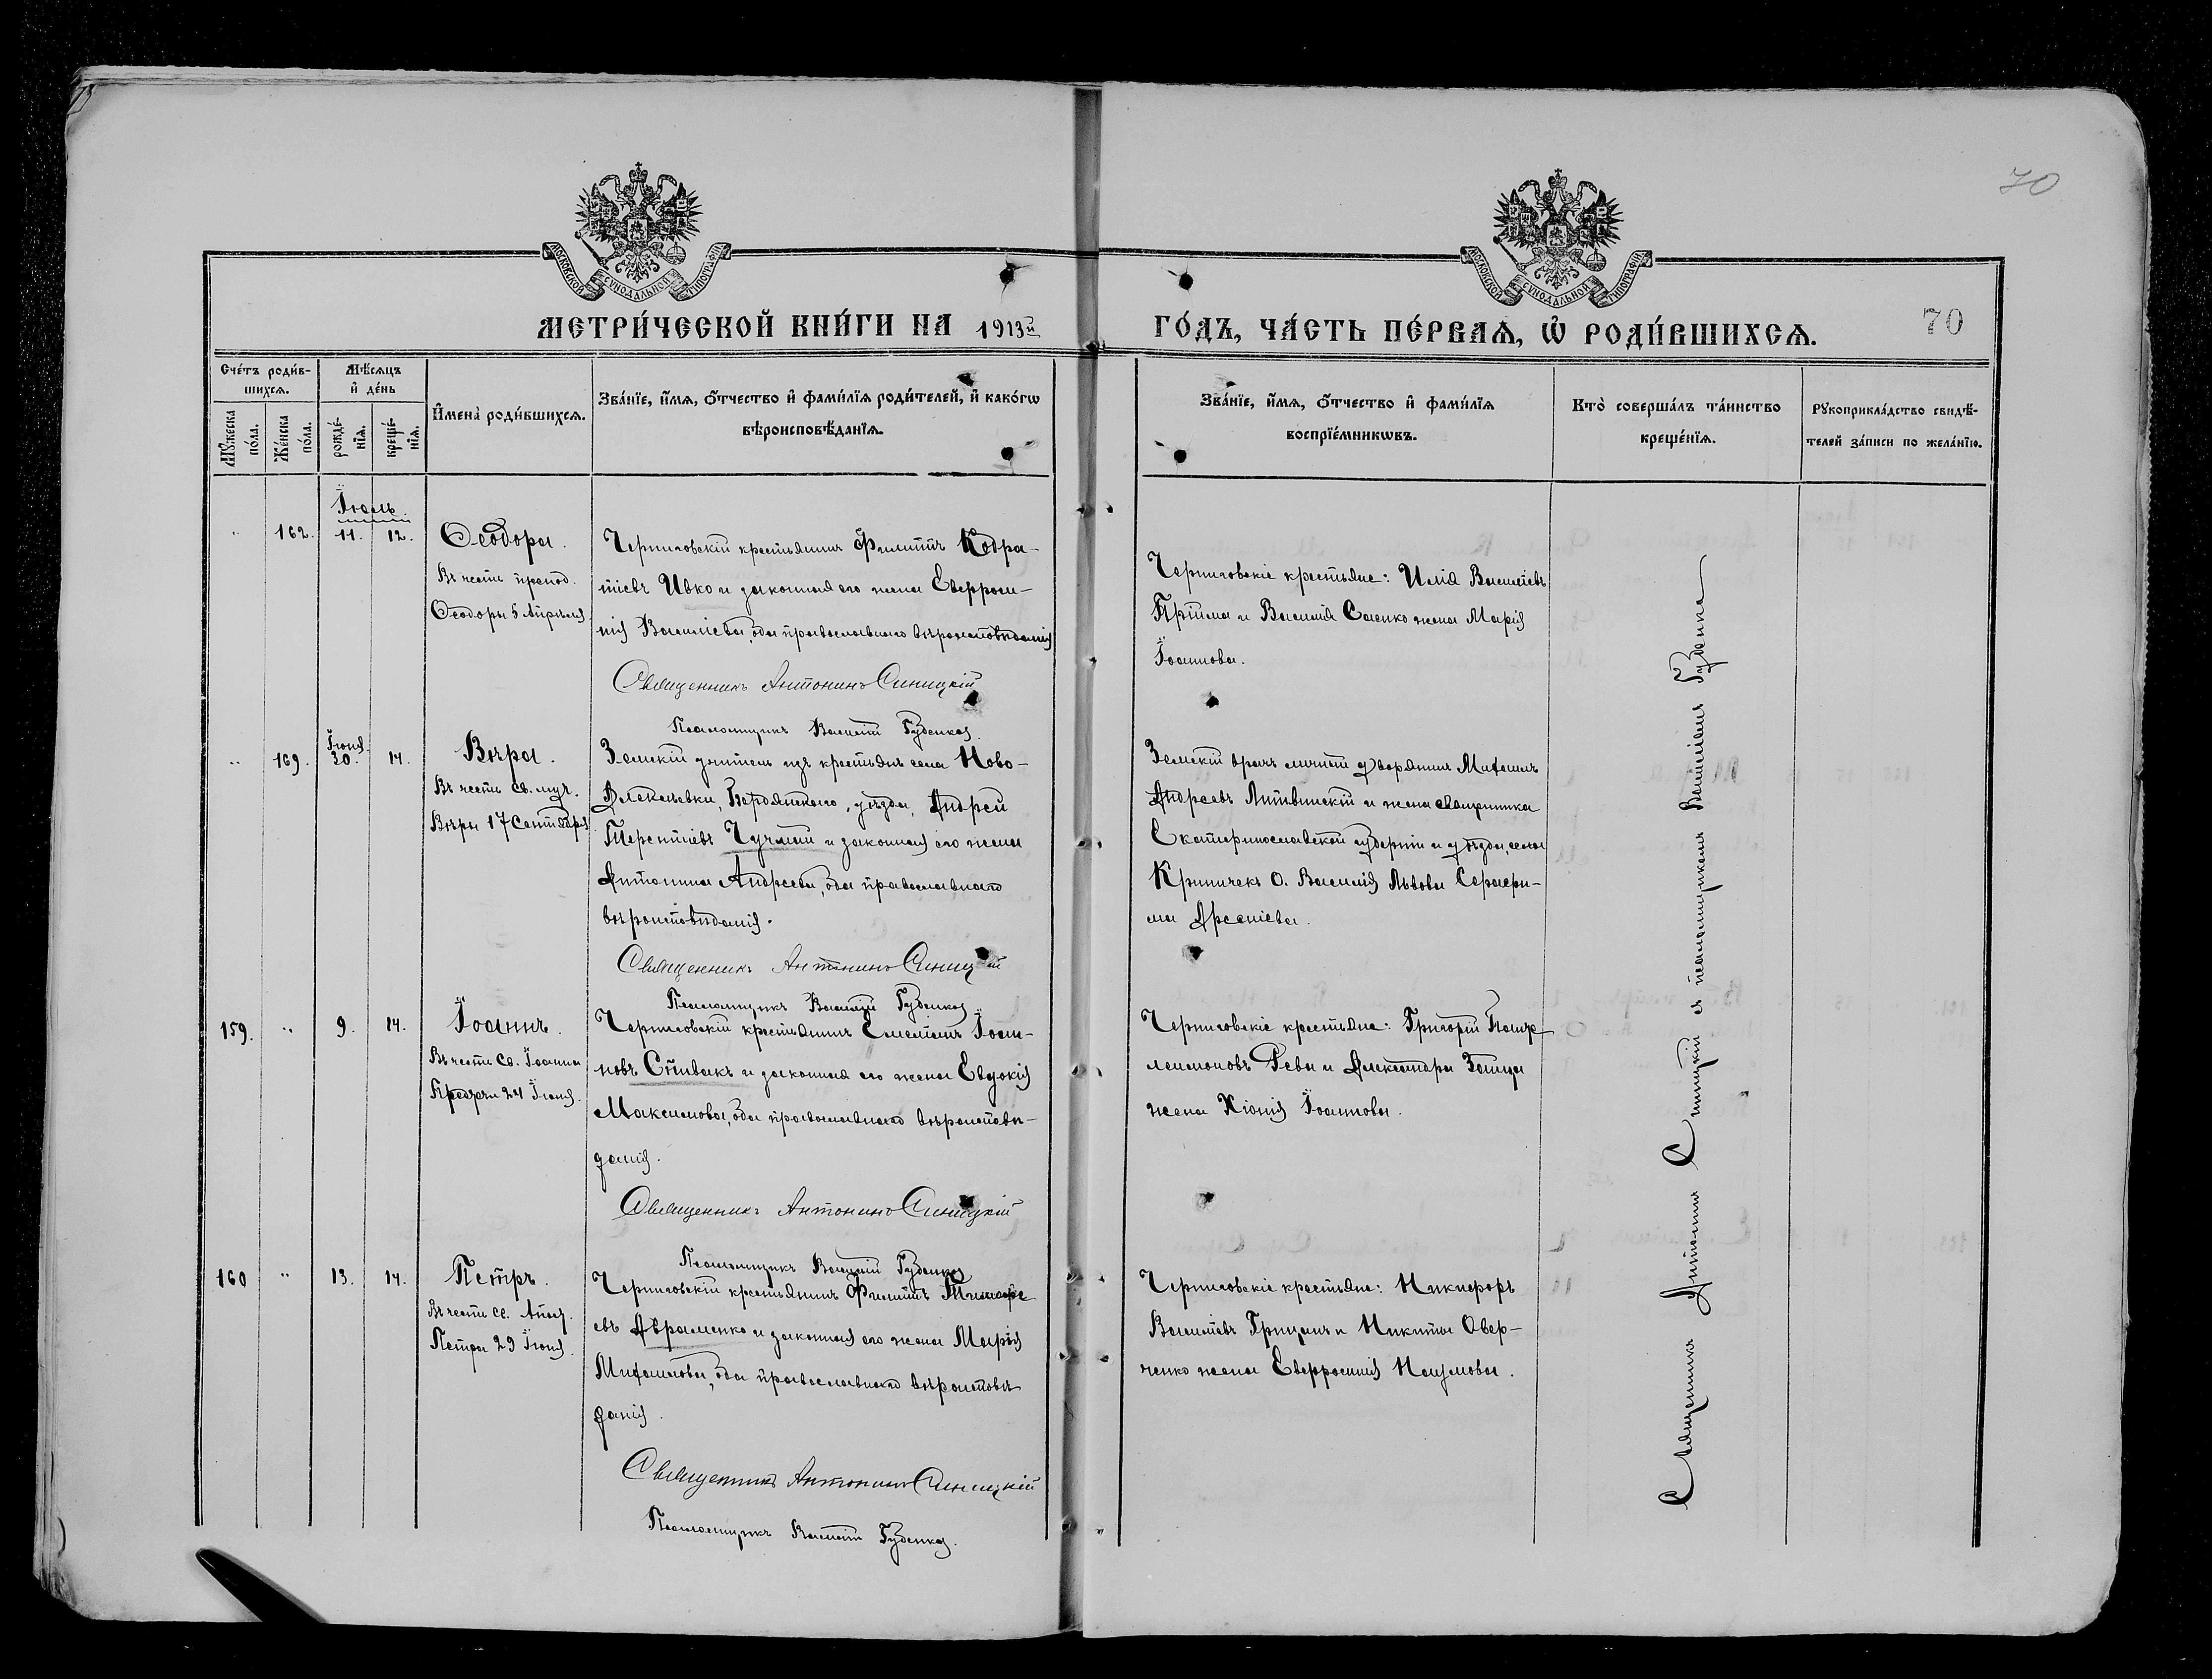 70
МОСКОВСКОЙ СѴНОДАЛЬНОЙ ТИПОГРАФІИ
МОСКОВСКОЙ СѴНОДАЛЬНОЙ ТИПОГРАФІИ
МЕТРИ́ЧЕСКОЙ КНИ́ГИ НА 1913й
ГО́ДЪ, ЧА́СТЬ ПЕ́РВАЯ, Ѽ РОДИ́ВШИХСЯ.
70
Сче́тъ роди́в-
шихся.
Мѣ́сяцъ
и҆ де́нь
Мꙋ́жеска
по́ла.
Же́нска
по́ла.
рожде́-
нїя.
креще́-
нїя.
И҆мена̀ роди́вшихся.
Зва́нїе, и҆́мя, ѻ҆́тчество и҆ фами́лїя роди́телей, и҆ како́гѡ
вѣроисповѣ́данїя.
Зва́нїе, и҆́мя, ѻ҆́тчество и҆ фами́лїя
воспрїе́мникѡвъ.
Кто̀ соверша́лъ та́инство
креще́нїя.
Рꙋкоприкла́дство свидѣ́-
телей за́писи по жела́нїю.
Іюль
„ 162. 11. 12.
Ѳеодора.
Въ честь препод.
Ѳеодоры 5 Апрѣля
Черниговскій крестьянинъ Филиппъ Кодра-
тіевъ Ивко и законная его жена Евфроси-
нія Василіева, оба православнаго вѣроисповѣданія
Священникъ Антонинъ Синицкій
Псаломщикъ Василій Губенко.
Черниговскіе крестьяне: Илія Василіевъ
и Василія Саенко жена Марія
Іоаннова.
„ 169. Іюня 30. 14.
Вѣра.
Въ честь св. муч.
Вѣры 17 Сентября
Земскій учитель изъ крестьянъ села Ново-
Алексѣевки, Бердянскаго уѣзда, Андрей
Терентіевъ и законная его жена
Антонина Андреева, оба православнаго
вѣроисповѣданія.
Священникъ Антонинъ Синицкій
Псаломщикъ Василій Губенко
Земскій врачъ личный дворянинъ Михаилъ
Андреевъ Литвинскій и жена священника
Екатеринославской губерніи и уѣзда, села
Криничекъ о. Василія Львова Серафи-
ма Арсеніева.
159. „ 9. 14.
Іоаннъ.
Въ честь Св. Іоанна
Предтечи 24 Іюня.
Черниговскій крестьянинъ Емеліанъ Іоан-
новъ Спивакъ и законная его жена Евдокія
Максимова, оба православнаго вѣроисповѣ-
данія.
Священникъ Антонинъ Синицкій
Псаломщикъ Василій Губенко
Черниговскіе крестьяне: Григорій Панте-
леимоновъ Рева и Александра Заица
жена Хіонія Іоаннова.
160 „ 13. 14.
Петръ.
Въ честь св. Апост.
Петра 29 Іюня.
Черниговскій крестьянинъ Филиппъ Тимофе-
евъ Авраменко и законная его жена Марія
Михаилова, оба православнаго вѣроисповѣ-
данія.
Священникъ Антонинъ Синицкій
Псаломщикъ Василій Губенко.
Черниговскіе крестьяне: Никифоръ
Василіевъ Грицанъ и Никиты Овер-
ченко жена Евфросинія Наумова.
Священникъ Антонинъ Синицкій съ псаломщикомъ Василіемъ Губенко